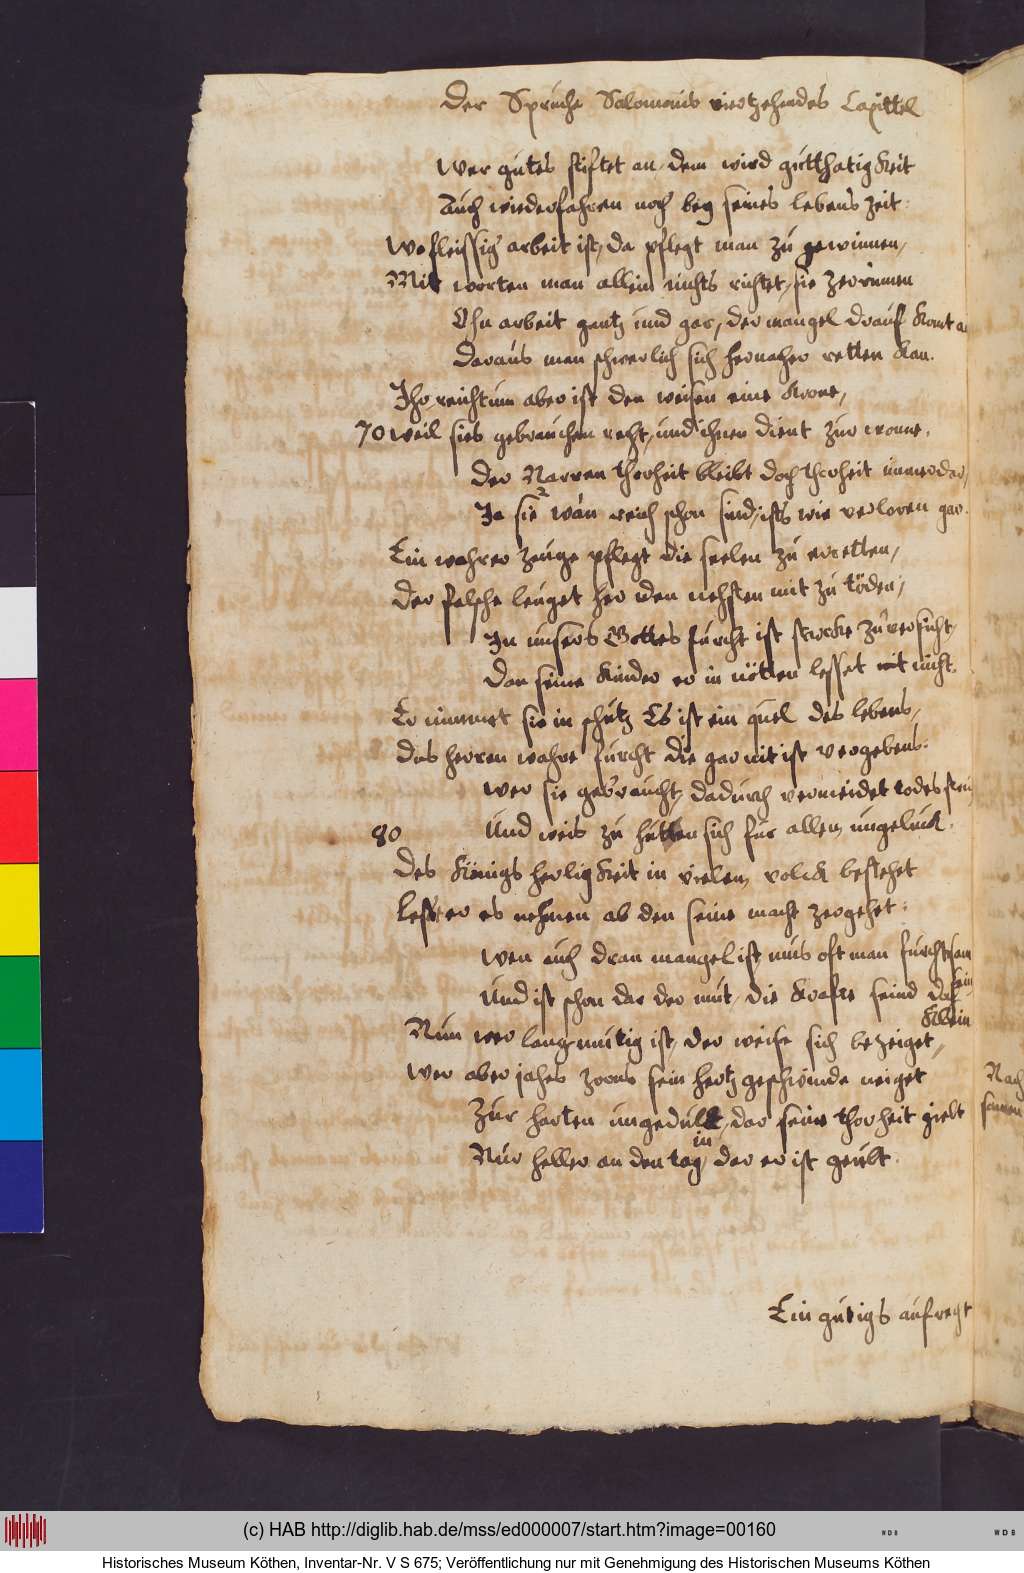 Der Spruche Salomonis viertzehendes Capittel
Wer gutes stiftet an, dem wird gutthatigkeit
Auch wiederfahren noch bey seines lebens zeit:
Wo fleissig arbeit ist, da pflegt man zu gewinnen,
Mit worten man allein nichts richtet, sie zerrinnen
Ohn arbeit gantz und gar, der mangel drauf komt an
Daraus man schwerlich sich hernaher retten kan.
Ihr reichtum aber ist den weisen eine krone,
70 weil sies gebrauchen reht, und ihnen dient zur wonne.
Der Narren thorheit bleibt doch thorheit immerdar,
Ja sie wan reich schon sind, ists wie verloren gar.
Ein wahrer zeuge pflegt die seelen zu erretten,
Der falsche leuget her den nehsten mit zu töden,
In unsers Gottes furcht ist starcke zuversicht,
Dan seine kinder er in nöten lesset nit nicht.
Er nimmet sie in schutz Es ist ein quel des lebens,
Des herren wahre furcht die gar nit ist vergebens:
Wer sie gebraucht, dadurch vermeidet todes strick
80 Und weis zu hutten sich fur allem ungeluck.
Des Königs herligkeit in vielem volck bestehet
Lest er es nehmen ab den seine macht zergehet:
Wen auch dran mangel ist, mus oft man furchtsam
sein
Und ist schon dar der mut, die krafte seind da
klein
Nun wer langmutig ist, der weise sich bezeiget,
Wer aber jahes zorns sein hertz geschwinde neiget
Zur harten ungedult, der seine thorheit giebt
in
Nur heller an den tag, der er ist geubt.
Ein gutigs aufregt
Nach
seinen
(c) HAB http://diglib.hab.de/mss/ed000007/start.htm?image=00160
WDB
WDB
Historisches Museum Köthen, Inventar-Nr. V S 675; Veröffentlichung nur mit Genehmigung des Historischen Museums Köthen